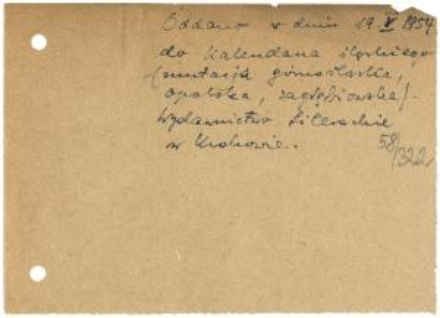 Oddano w dniu 19. V 1954
do Kalendarza śląskiego
(mutacja górnośląska,
opolska, zagłębiowska).
Wydawnictwo Literackie
w Krakowie.
58/322